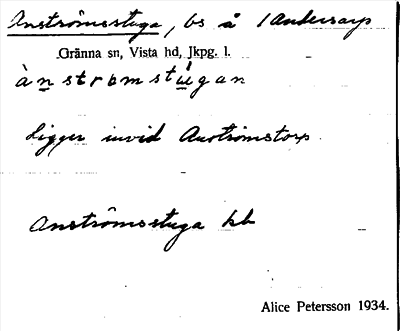 Anströmsstuga, bs å 1 Andersarp
Gränna sn, Vista hd, Jkpg. l.
ànstrømstúgan
Ligger invid Anströmstorp
Anströmsstuga hb
Alice Petersson 1934.